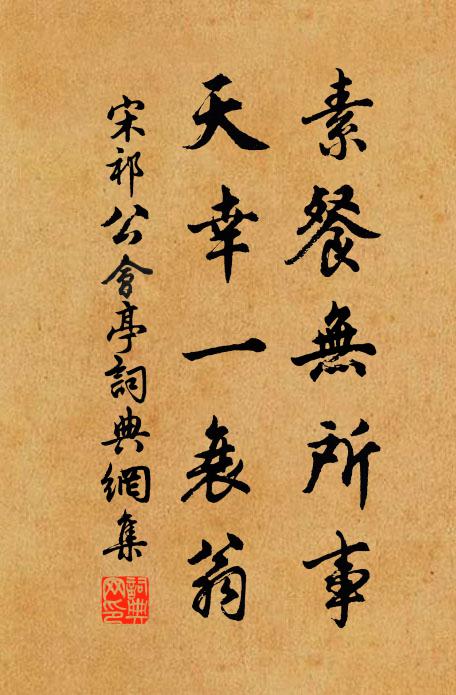 素餐無所事
天幸一衰翁
宋祁公會亭詞典網集
詞典網印